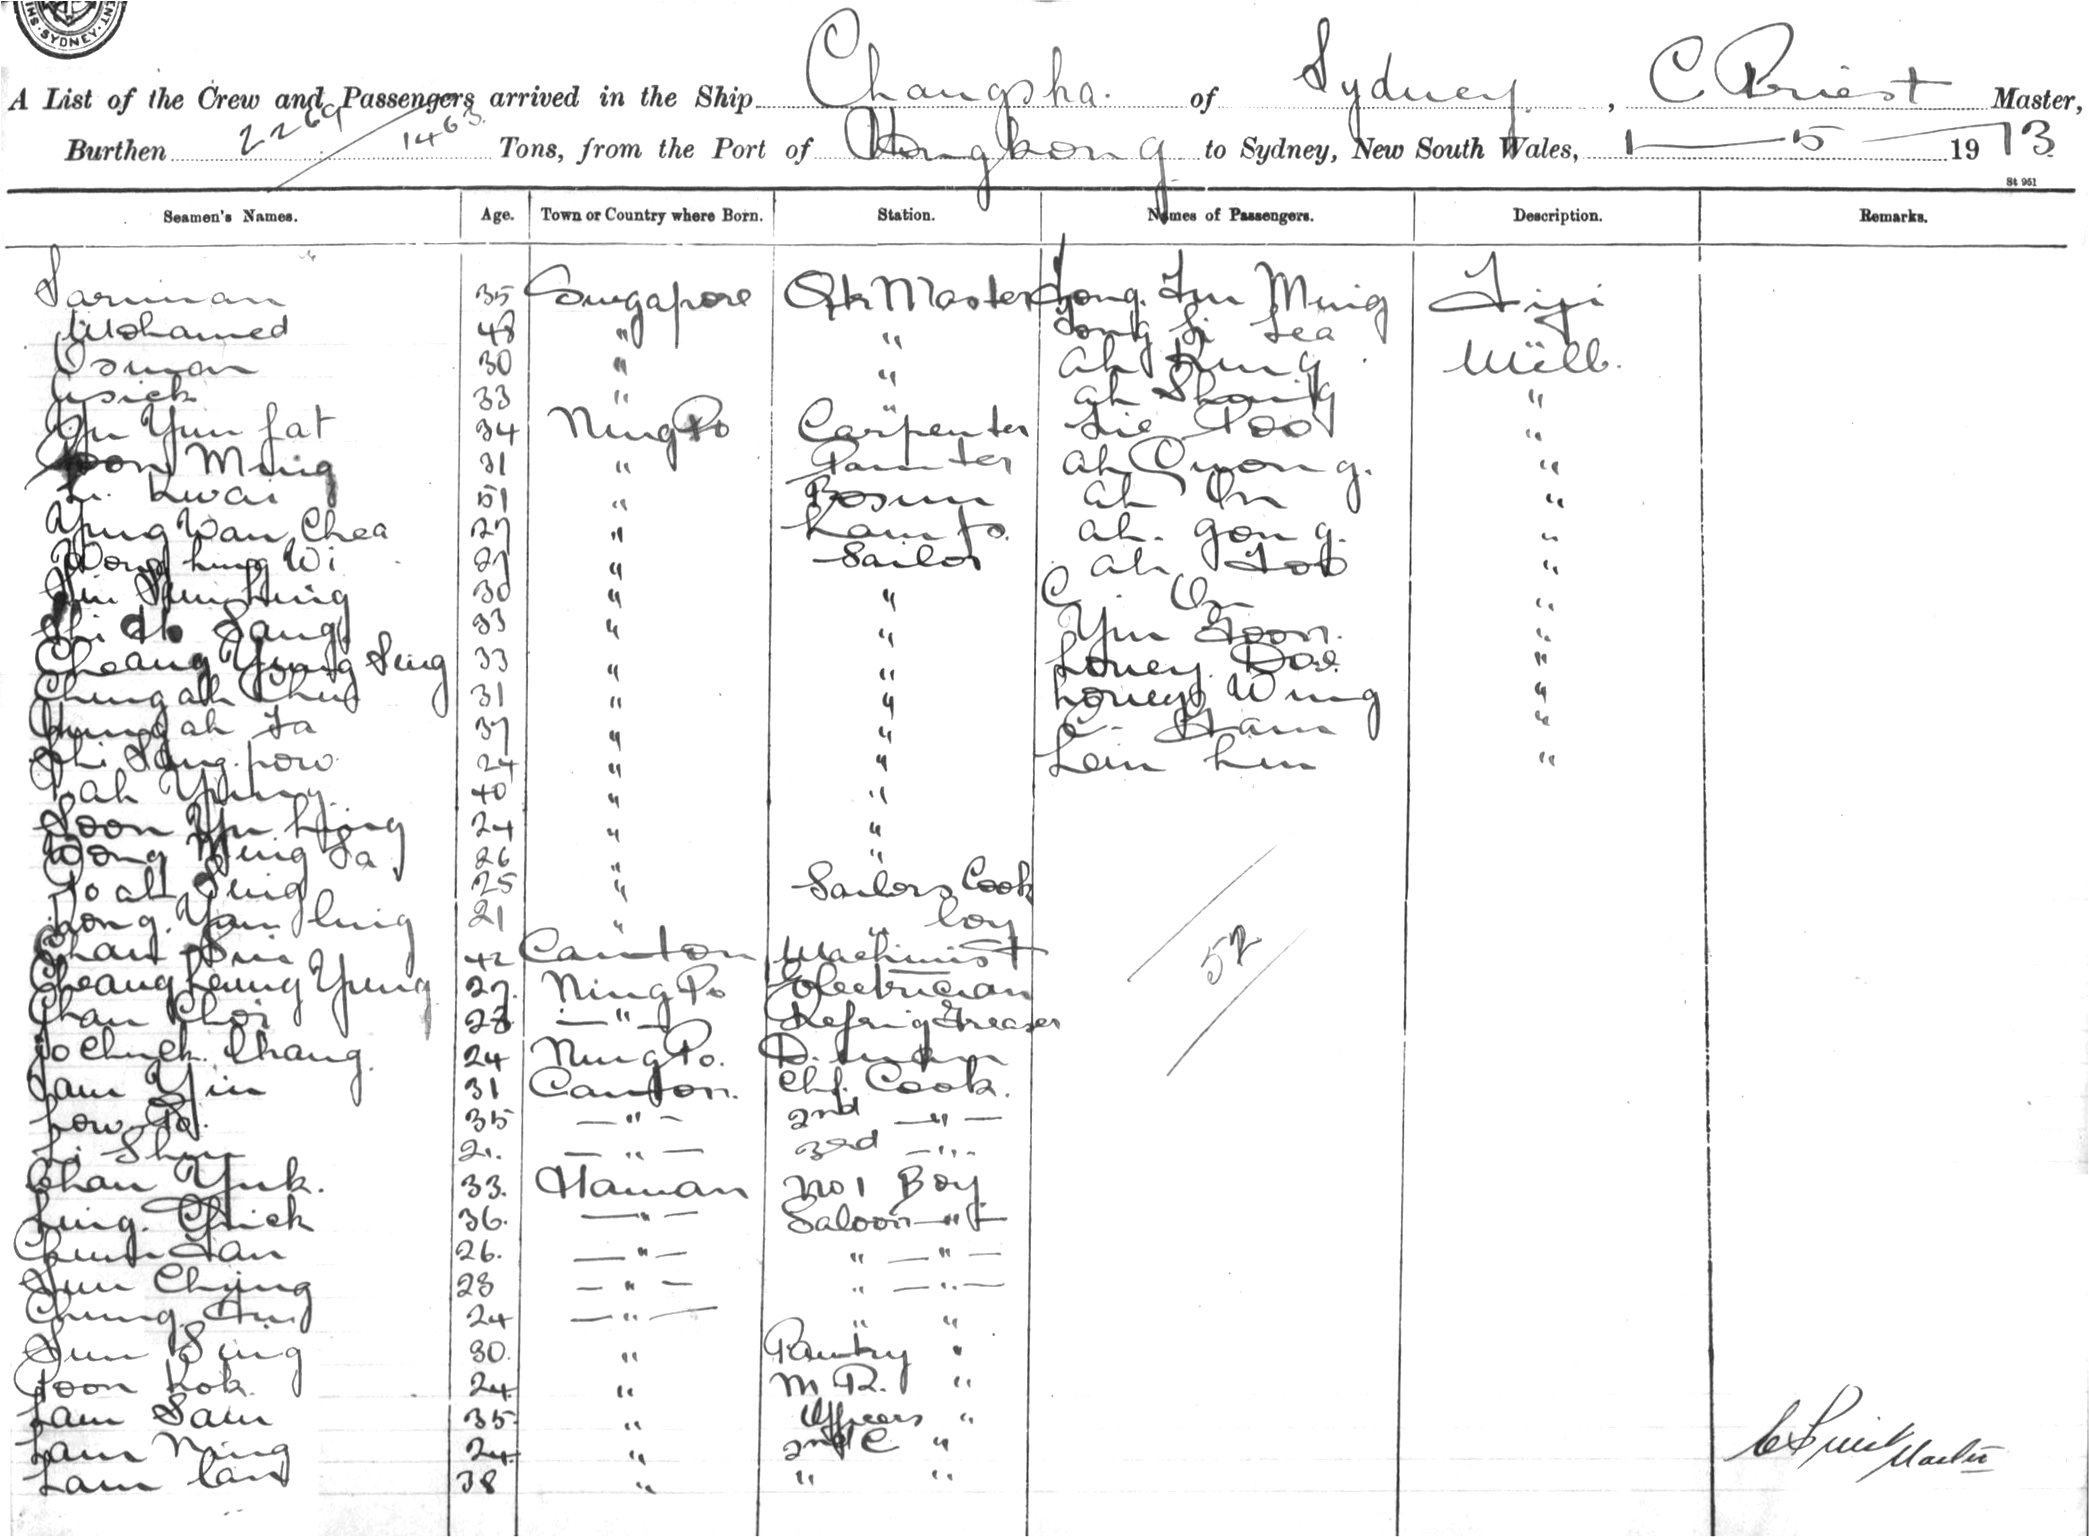 SYDNEY
A List of the Crew and Passengers arrived in the Ship Changsha. of Sydney, C Priest Master,
Burthen 2269 / 1463 Tons, from the Port of Hongkong to Sydney, New South Wales, 1 — 5 — 1913
St 961
Seamen's Names. Age. Town or Country where Born. Station. Names of Passengers. Description. Remarks.
Sariman 35 Singapore Qtr Master Fong. Fun Ming Fiji
Mohamed 48 " " Fong Si Lea "
Osman 30 " " ah King Melb.
Usick 33 " " ah "
Yun fat 34 Ning Po Carpenter Lie Poo "
Ming 31 " Painter ah Quong. "
Li. Kwai 51 " Bosun ah On "
Ying Wan Chea 27 " Lamps. ah. gong. "
Wong hung Wi 27 " Sailor ah Foo "
30 " " C. On "
Sang 33 " " Yin Goon. "
Cheang Yung Sing 33 " " Louey. "
Chung ah Chu 31 " " Louey Wing "
Chung ah Fa 37 " " C. Ham "
Shi Sang. pow 24 " " Lein hun "
ah Yung. 40 " "
Soon Yu hong 24 " "
Wong Ming Fa 26 " "
ah Sing 25 " Sailors Cook
hong. Yan ling 21 " " boy
Chan Sui 42 Canton Machinist
Cheang Leung Yung 27. Ning Po Electrician
Chan Choi 28 — " — Refrig Greaser
Chuck. Chang. 24 Ning Po.
Sam Yin 31 Canton. Chf. Cook.
Low 35 — " — 2nd — " —
Li Shun 21. — " — 3rd — " .
Chan Yuk. 33. Hainan No 1 Boy
Ling. Chick 36. — " — Saloon — " —
26. — " — " — " —
Sun Chung 23 — " — " — " —
Chung. 24 — " — " "
Sun Sing 30. " Pantry "
Poon Kok. 24. " M R. "
Lam Sam 35 " Officers "
Lam Ning 24. " 2nd C "
Lam 38 " " "
52
C Priest Master